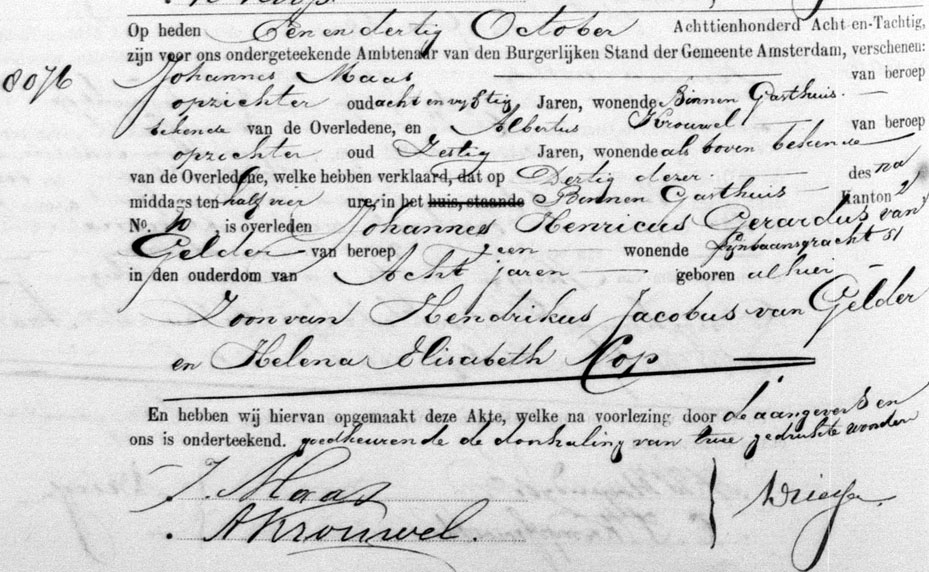 Op heden Een en dertig October Achttienhonderd Acht-en-Tachtig,
zijn voor ons ondergeteekende Ambtenaar van den Burgerlijken Stand der Gemeente Amsterdam, verschenen:
8076 Johannes Maas van beroep
opzichter oud acht en vyftig Jaren, wonende Binnen Gasthuis.
bekende van de Overledene, en Albertus Krouwel van beroep
opzichter oud Zestig Jaren, wonende als boven bekende
van de Overledene, welke hebben verklaard, dat op Dertig dezer des na
middags ten half vier ure, in het huis, staande Binnen Gasthuis Kanton 2
No. is overleden Johannes Henricus Gerardus van
Gelder van beroep geen wonende Lijnbaansgracht 51
in den ouderdom van Acht jaren geboren alhier
Zoon van Hendrikus Jacobus van Gelder
en Helena Elisabeth Kop
En hebben wij hiervan opgemaakt deze Akte, welke na voorlezing door de aangevers en
ons is onderteekend. goedkeurende de doorhaling van twee gedrukte woorden
J. Maas
A Krouwel.